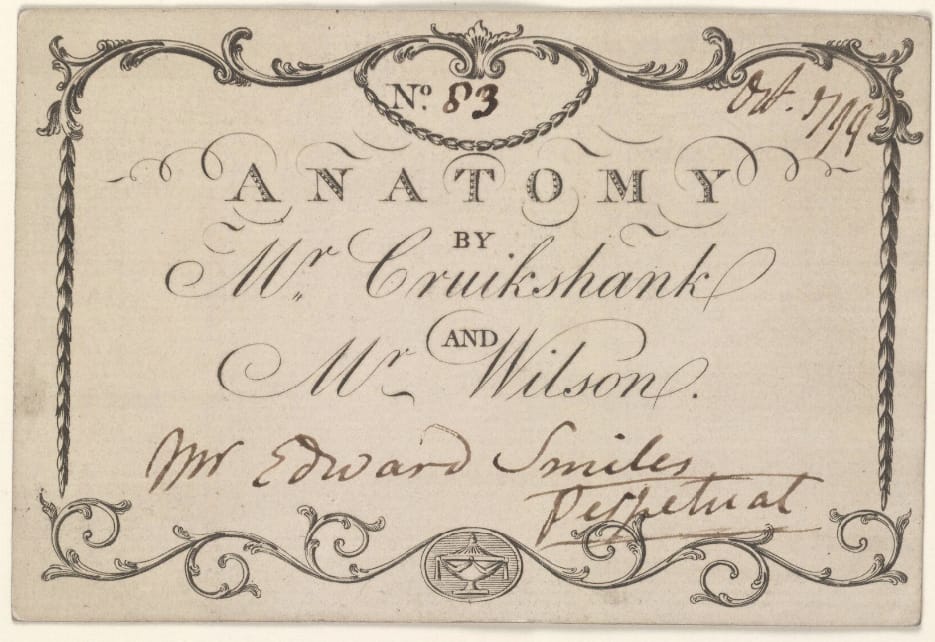 No. 83
Oct. 1799
ANATOMY
BY
Mr. Cruikshank
AND
Mr Wilson.
Mr Edward Smiles
Perpetual